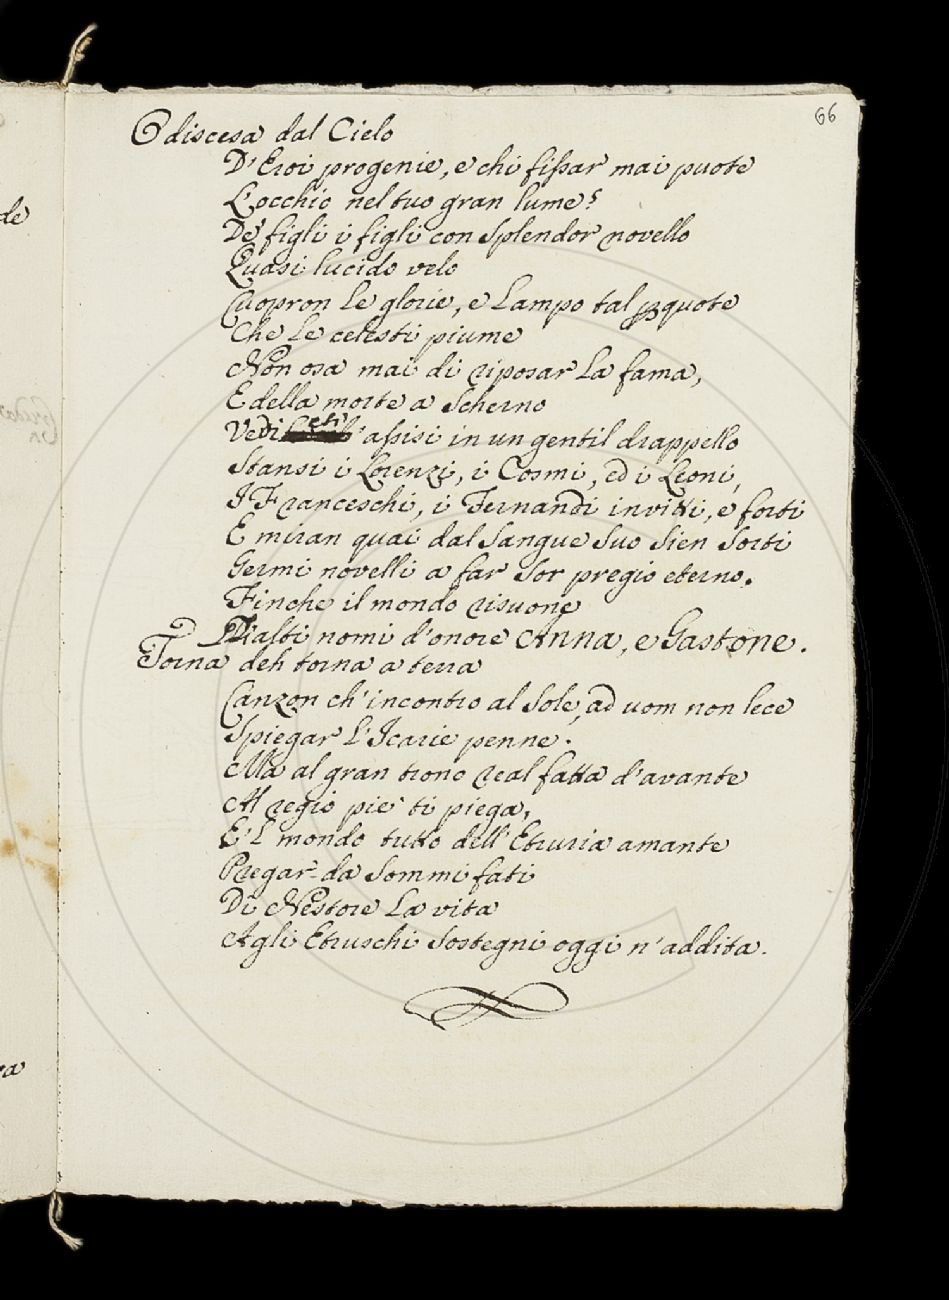 66
O discesa dal Cielo
D'Eroi progenie, e chi fissar mai puote
L'occhio nel tuo gran lume?
De' figli i figli con splendor novello
Quasi lucido velo
Cuopron le glorie, e lampo tal percuote
Che le celesti piume
Non osa mai di riposar la fama,
E della morte a scherno
Vedi assisi in un gentil drappello
Stansi i Lorenzi, i Cosmi, ed i Leoni,
I Franceschi, i Fernandi invitti, e forti
E miran quai dal sangue suo sien sorti
Germi novelli a far lor pregio eterno.
Finche il mondo risuone
D'alti nomi d'onore Anna, e Gastone.
Torna deh torna a terra
Canzon ch'incontro al Sole, ad uom non lece
Spiegar l'Icarie penne.
Ma al gran trono real fatta d'avante
Al regio pie' ti piega,
E'l mondo tutto dell'Etruria amante
Pregar da sommi fati
Di Nestore la vita
Agli Etruschi sostegni oggi n'addita.
de
ra